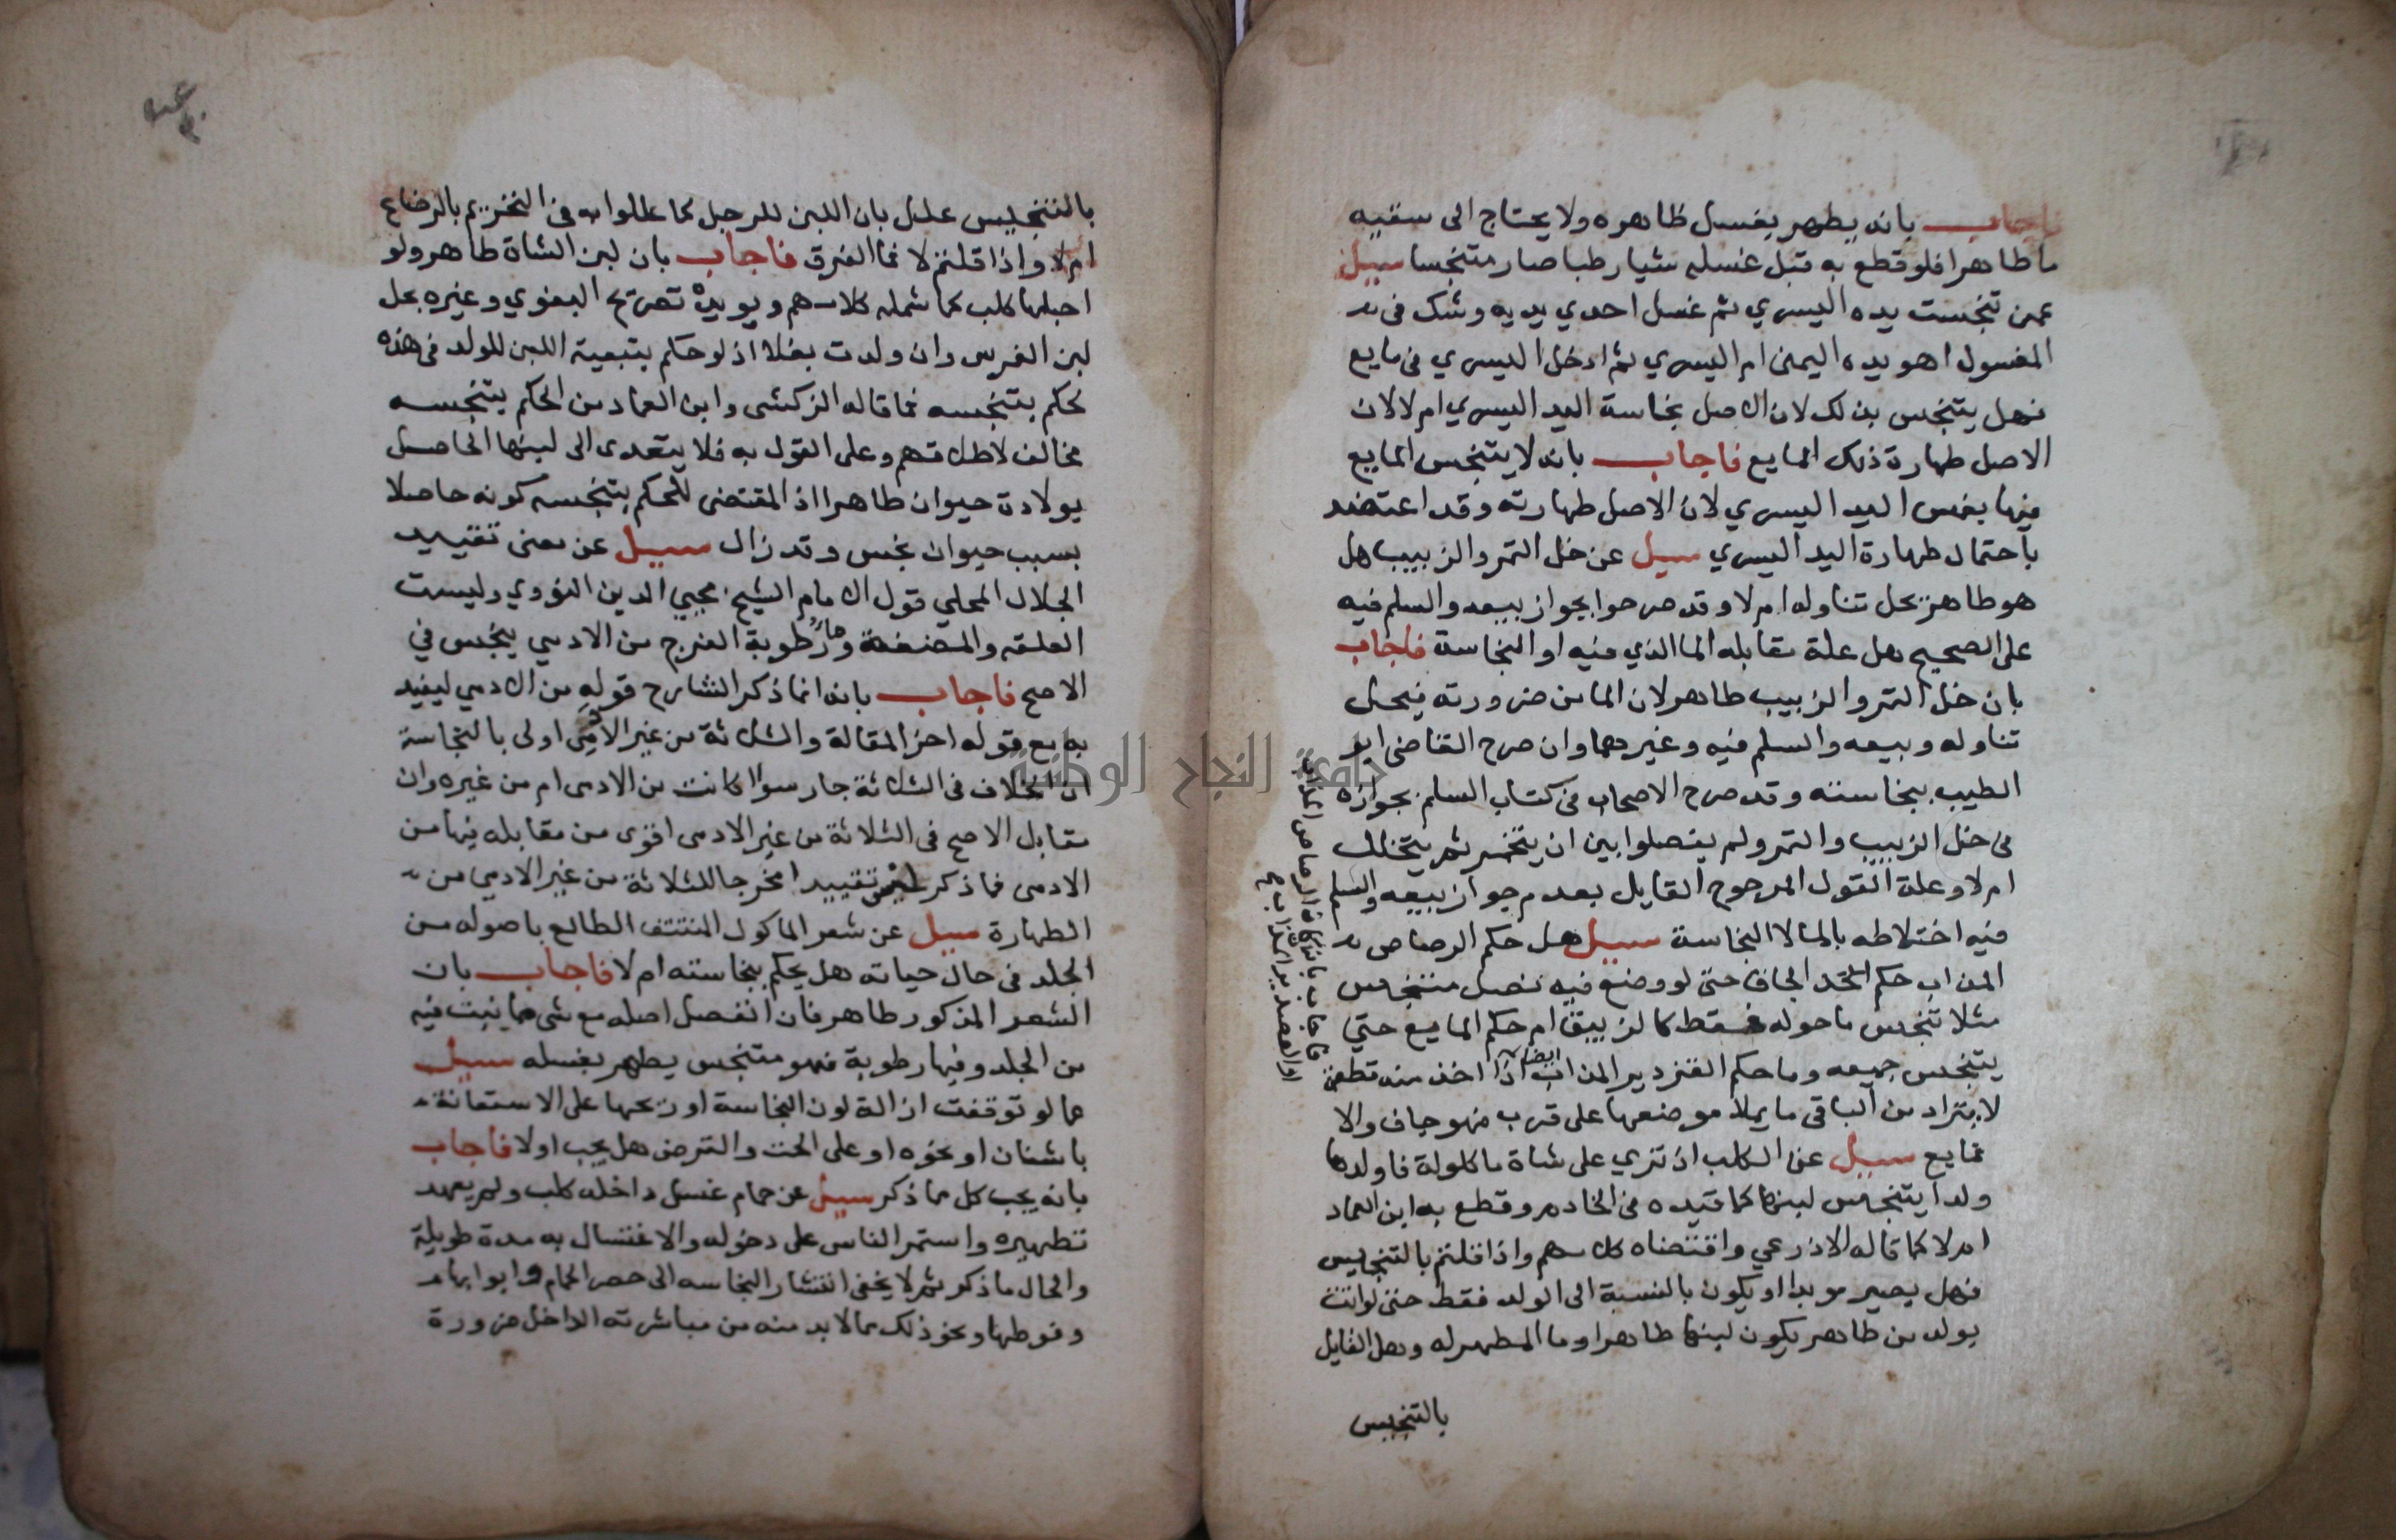 فاجاب بانه يطهر بغسل ظاهره ولا يحتاج الى سقيه
ما طاهرا فلو قطع به قبل غسله شيا رطبا صار متنجسا سيل
عمن تنجست يده اليسري ثم غسل احدي يديه وشك في
المغسول اهو يده اليمنى ام اليسري ثم ادخل اليسري في مايع
فهل يتنجس بذلك لان الاصل نجاسة اليد اليسري ام لا لان
الاصل طهارة ذلك المايع فاجاب بانه لا يتنجس المايع
فيها بغمس اليد اليسري لان الاصل طهارته وقد اعتضد
باحتمال طهارة اليد اليسري سيل عن خل التمر والزبيب هل
هو طاهر يحل تناوله ام لا وقد صرحوا بجواز بيعه والسلم فيه
على الصحيح وهل علة مقابله الما الذي فيه او النجاسة فاجاب
بان خل التمر والزبيب طاهر لان الما من ضرورته فيحل
تناوله وبيعه والسلم فيه وغيرهما وان صرح القاضى ابو
الطيب بنجاسته وقد صرح الاصحاب في كتاب السلم بجوازه
في خل الزبيب والتمر ولم يفصلوا بين ان يتخمر ثم يتخلل
ام لا وعلة القول المرجوح القايل بعدم جواز بيعه والسلم
فيه اختلاطه بالما لا النجاسة سيل هل حكم الرصاص
المذاب حكم الجاف حتى لو وضع فيه فصل متنجس
مثلا تنجس ما حوله فقط كالزيبق ام حكم المايع حتي
يتنجس جميعه وما حكم القزدير المذاب ايضا اذا اخذ منه قطعة
لا يتراد من الباقى ما يملا موضعها على قرب فهو جاف والا
فمايع سيل عن الكلب اذ نزي على شاة ماكولة فاولدها
ولدا يتنجس لبنها كما قيده في الخادم وقطع به ابن العماد
ام لا كما قاله الاذرعي واقتضاه كلامهم واذا قلتم بالتنجيس
فهل يصير موبدا او يكون بالنسبة الى الولد فقط حتى لو اتت
بولد من طاهر يكون لبنها طاهرا وما المطهر له وهل القايل
بالتنجيس
بالتنجيس علل بان اللبن للرجل كما عللوا به في التحريم بالرضاع
ام لا واذا قلتم لا فما الفرق فاجاب بان لبن الشاة طاهر ولو
احبلها كلب كما شمله كلامهم ويويده تصريح البغوي وغيره بحل
لبن الفرس وان ولدت بغلا اذ لو حكم بتبعية اللبن للولد في هذه
لحكم بتنجسه فما قاله الزركشى وابن العماد من الحكم بتنجسه
مخالف لاطلاقهم وعلى القول به فلا يتعدى الى لبنها الحاصل
بولادة حيوان طاهرا اذ المقتضى للحكم بتنجسه كونه حاصلا
بسبب حيوان نجس وقد زال سيل عن معنى تقييد
الجلال المحلي قول الامام الشيخ محيي الدين النووي وليست
العلقه والمضغة ورطوبة الفرج من الادمي بنجس في
الاصح فاجاب بانه انما ذكر الشارح قوله من الادمي ليفيد
به مع قوله اخر المقالة والثلاثة من غير الادمي اولى بالنجاسة
ان الخلاف في الثلاثة جار سوا كانت من الادمى ام من غيره وان
مقابل الاصح في الثلاثة من غير الادمى اقوى من مقابله فيها من
الادمى فما ذكر ليس تقييدا مخرجا للثلاثة من غير الادمي من
الطهارة سيل عن شعر الماكول المنتتف الطالع باصوله من
الجلد في حال حياته هل يحكم بنجاسته ام لا فاجاب بان
الشعر المذكور طاهر فان انفصل اصله مع شي مما نبت فيه
من الجلد وفيها رطوبة فهو متنجس يطهر بغسله سيل
عما لو توقفت ازالة لون النجاسة او ريحها على الاستعانة
باشنان او نحوه او على الحت والقرص هل يجب اولا فاجاب
بانه يجب كل مما ذكر سيل عن حمام غسل داخله كلب ولم يعهد
تطهيره واستمر الناس على دخوله والاغتسال به مدة طويلة
والحال ما ذكر ثم لا يخفى انتشار النجاسه الى حصر الحمام وابوابها
وفوطها ونحو ذلك مما لا بد منه من مباشرته الداخل ضرورة
جامعة النجاح الوطنية